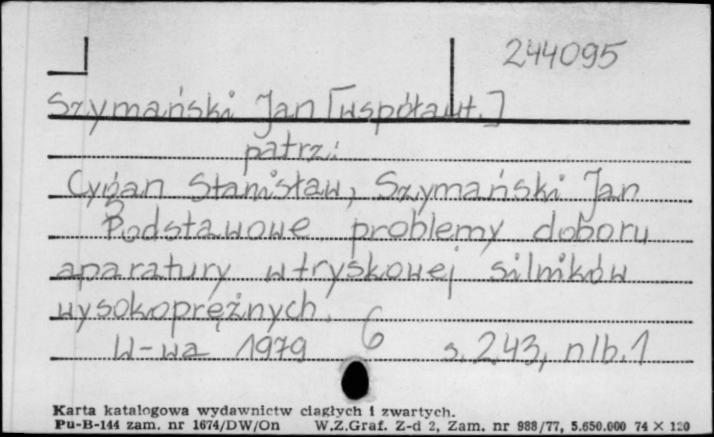 244095
Szymański Jan [współaut.]
patrz:
Cygan Stanisław, Szymański Jan
Podstawowe problemy doboru
aparatury wtryskowej silników
wysokoprężnych.
W-wa 1979 6 s. 243, nlb. 1
Karta katalogowa wydawnictw ciągłych i zwartych.
Pu-B-144 zam. nr 1674/DW/On W.Z.Graf. Z-d 2, Zam. nr 988/77, 5.650.000 74 × 120